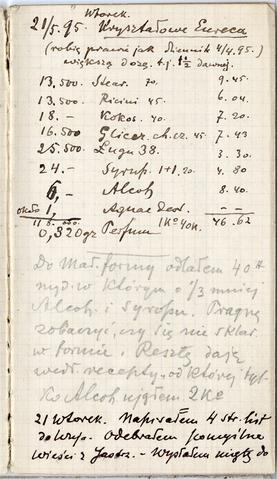 Wtorek.
21/5.95. Kryształowe Eureca
(robię prawie jak dziennik 4/4.95.)
większą dozę t.j. 1 1/2 dawnej.
13.500. Stear. 70. 9.45
13.500 Ricini 45. 6.04
18.— Kokos. 40. 7.20
16.500 Glicer. ch. cz. 45. 7.43
25.500 Lugu 38. 3.30
24.— Syrup. 1+1.20 4.80
6,— Alcoh 8.40
około 1, Aquae Dest. — —
1 Ko 40K. 46.62
0,320 gr Perfum
Do mał. formy odlałem 40 #
myd. w którym o 1/3 mniej
Alcoh. i Syropu. Pragnę
zobaczyć, czy się nie sklar.
w formie. Resztę daję
wedł. recepty, od której tyl-
ko Alcoh ująłem 2 Ko
21 Wtorek. Napisałem 4 str. list
do Odebrałem pomyślne
wieści z Jastrz. — Wysłałem do